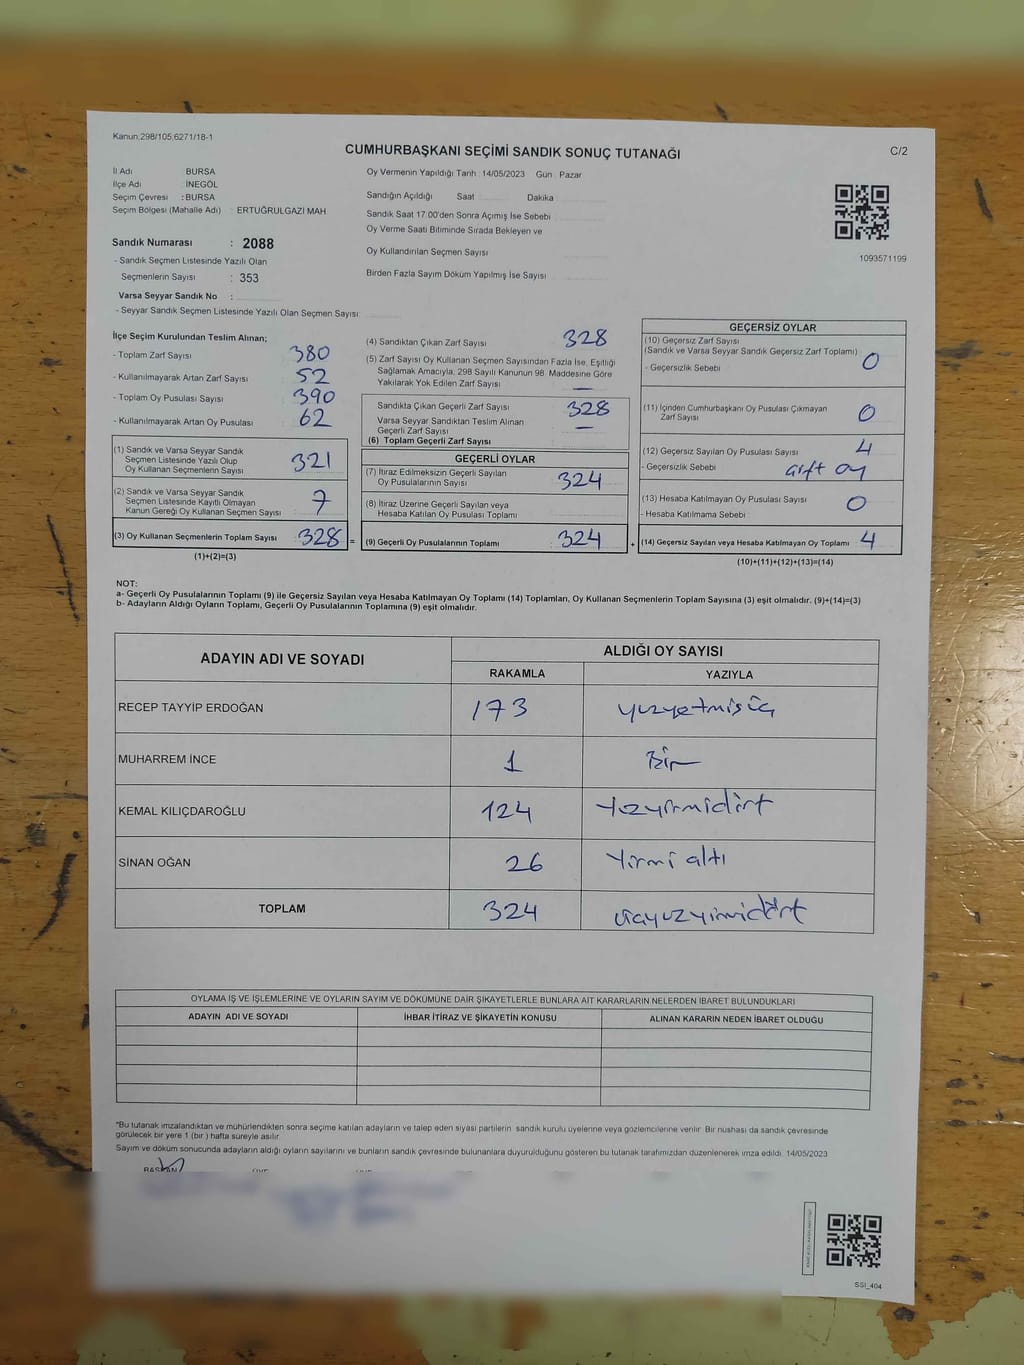 Kanun:298/105.6271/18-1
C/2
CUMHURBAŞKANI SEÇİMİ SANDIK SONUÇ TUTANAĞI
İl Adı BURSA
İlçe Adı : İNEGÖL
Seçim Çevresi : BURSA
Seçim Bölgesi (Mahalle Adı) : ERTUĞRULGAZİ MAH
Sandık Numarası : 2088
- Sandık Seçmen Listesinde Yazılı Olan
Seçmenlerin Sayısı : 353
Varsa Seyyar Sandık No :
- Seyyar Sandık Seçmen Listesinde Yazılı Olan Seçmen Sayısı:
Oy Vermenin Yapıldığı Tarih :14/05/2023 Gün : Pazar
Sandığın Açıldığı Saat Dakika
Sandık Saat 17.00'den Sonra Açımış İse Sebebi
Oy Verme Saati Bitiminde Sırada Bekleyen ve
Oy Kullandırılan Seçmen Sayısı
Birden Fazla Sayım Döküm Yapılmış İse Sayısı
1093571199
İlçe Seçim Kurulundan Teslim Alınan;
- Toplam Zarf Sayısı 380
- Kullanılmayarak Artan Zarf Sayısı 52
- Toplam Oy Pusulası Sayısı 390
- Kullanılmayarak Artan Oy Pusulası 62
(1) Sandık ve Varsa Seyyar Sandık
Seçmen Listesinde Yazılı Olup
Oy Kullanan Seçmenlerin Sayısı 321
(2) Sandık ve Varsa Seyyar Sandık
Seçmen Listesinde Kayıtlı Olmayan
Kanun Gereği Oy Kullanan Seçmen Sayısı 7
(3) Oy Kullanan Seçmenlerin Toplam Sayısı 328 =
(1)+(2)=(3)
(4) Sandıktan Çıkan Zarf Sayısı 328
(5) Zarf Sayısı Oy Kullanan Seçmen Sayısından Fazla İse, Eşitliği
Sağlamak Amacıyla, 298 Sayılı Kanunun 98. Maddesine Göre
Yakılarak Yok Edilen Zarf Sayısı —
Sandıkta Çıkan Geçerli Zarf Sayısı 328
Varsa Seyyar Sandıktan Teslim Alınan
Geçerli Zarf Sayısı —
(6) Toplam Geçerli Zarf Sayısı
GEÇERLİ OYLAR
(7) İtiraz Edilmeksizin Geçerli Sayılan
Oy Pusulalarının Sayısı 324
(8) İtiraz Üzerine Geçerli Sayılan veya
Hesaba Katılan Oy Pusulası Toplamı
(9) Geçerli Oy Pusulalarının Toplamı 324 +
GEÇERSİZ OYLAR
(10) Geçersiz Zarf Sayısı
(Sandık ve Varsa Seyyar Sandık Geçersiz Zarf Toplamı)
- Geçersizlik Sebebi 0
(11) İçinden Cumhurbaşkanı Oy Pusulası Çıkmayan
Zarf Sayısı 0
(12) Geçersiz Sayılan Oy Pusulası Sayısı 4
- Geçersizlik Sebebi çift oy
(13) Hesaba Katılmayan Oy Pusulası Sayısı 0
- Hesaba Katılmama Sebebi
(14) Geçersiz Sayılan veya Hesaba Katılmayan Oy Toplamı 4
(10)+(11)+(12)+(13)=(14)
NOT:
a- Geçerli Oy Pusulalarının Toplamı (9) ile Geçersiz Sayılan veya Hesaba Katılmayan Oy Toplamı (14) Toplamları, Oy Kullanan Seçmenlerin Toplam Sayısına (3) eşit olmalıdır. (9)+(14)=(3)
b- Adayların Aldığı Oyların Toplamı, Geçerli Oy Pusulalarının Toplamına (9) eşit olmalıdır.
ADAYIN ADI VE SOYADI ALDIĞI OY SAYISI
RAKAMLA YAZIYLA
RECEP TAYYİP ERDOĞAN 173 yüzyetmisüç
MUHARREM İNCE 1 Bir
KEMAL KILIÇDAROĞLU 124 Yüzyirmidört
SİNAN OĞAN 26 Yirmi altı
TOPLAM 324 üçyüzyirmidört
OYLAMA İŞ VE İŞLEMLERİNE VE OYLARIN SAYIM VE DÖKÜMÜNE DAİR ŞİKAYETLERLE BUNLARA AİT KARARLARIN NELERDEN İBARET BULUNDUKLARI
ADAYIN ADI VE SOYADI İHBAR İTİRAZ VE ŞİKAYETİN KONUSU ALINAN KARARIN NEDEN İBARET OLDUĞU
*Bu tutanak imzalandıktan ve mühürlendikten sonra seçime katılan adayların ve talep eden siyasi partilerin sandık kurulu üyelerine veya gözlemcilerine verilir. Bir nüshası da sandık çevresinde
görülecek bir yere 1 (bir ) hafta süreyle asılır.
Sayım ve döküm sonucunda adayların aldığı oyların sayılarını ve bunların sandık çevresinde bulunanlara duyurulduğunu gösteren bu tutanak tarafımızdan düzenlenerek imza edildi. 14/05/2023
BAŞKAN ÜYE ÜYE
SSI_404